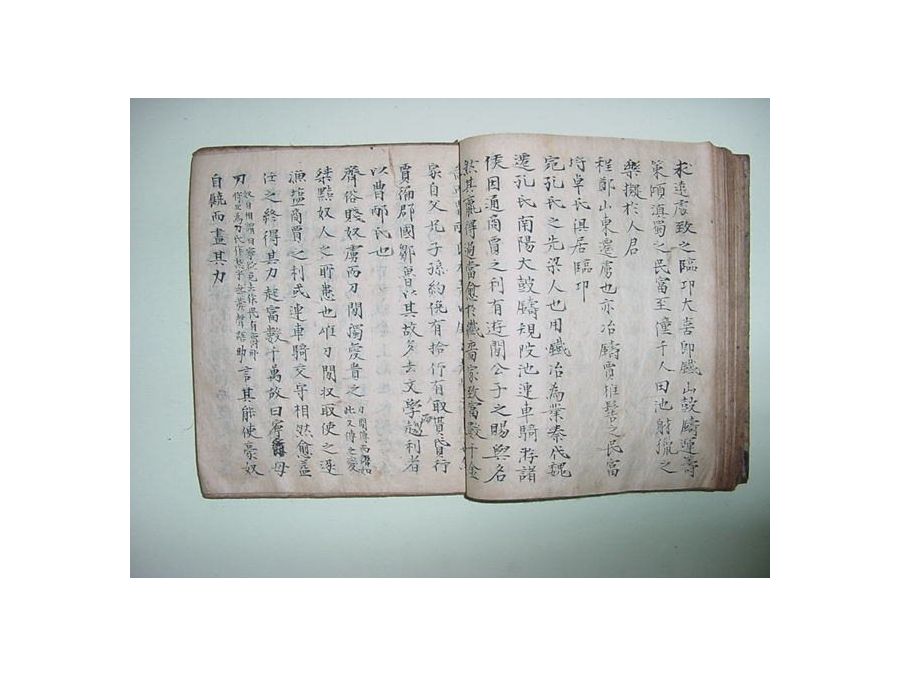 求遠遷致之臨邛大喜即鐵山鼓鑄運籌
策傾滇蜀之民富至僮千人田池射獵之
樂擬於人君
程鄭山東遷虜也亦冶鑄賈椎髻之民富
埒卓氏俱居臨邛
宛孔氏之先梁人也用鐵冶為業秦伐魏
遷孔氏南陽大鼓鑄規陂池連車騎游諸
侯因通商賈之利有游閑公子之賜與名
然其贏得過當愈於纖嗇家致富數千金
家自父兄子孫約俛有拾仰有取貰貸行
賈徧郡國鄒魯以其故多去文學而趨利者
以曹邴氏也
齊俗賤奴虜而刀閒獨愛貴之
桀黠奴人之所患也唯刀閒收取使之逐
漁鹽商賈之利或連車騎交守相然愈益
任之終得其力起富數千萬故曰寧爵毋
刀 言其能使豪奴
自饒而盡其力